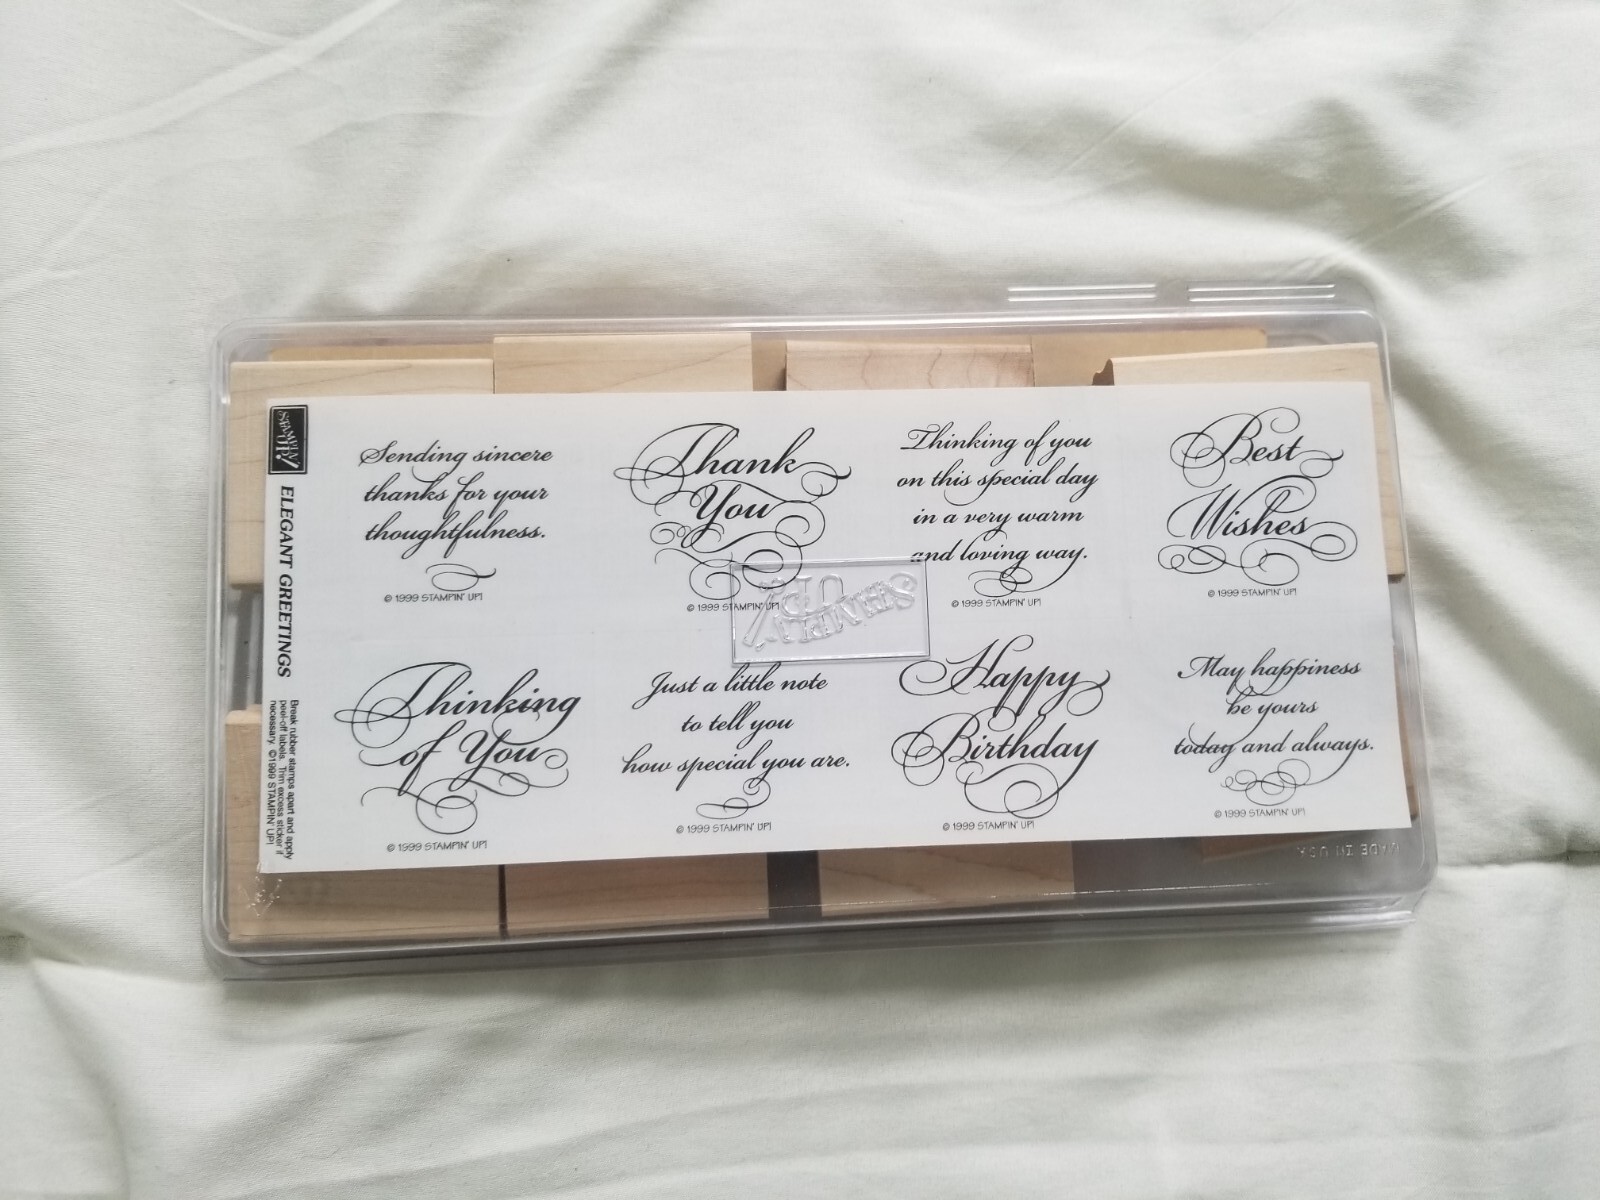 STAMPIN' UP!
ELEGANT GREETINGS
Break rubber stamps apart and apply
peel-off labels. Trim excess sticker if
necessary. ©1999 STAMPIN' UP!
Sending sincere
thanks for your
thoughtfulness.
© 1999 STAMPIN' UP!
Thank
You
© 1999 STAMPIN' UP!
Thinking of you
on this special day
in a very warm
and loving way.
© 1999 STAMPIN' UP!
Best
Wishes
© 1999 STAMPIN' UP!
STAMPIN' UP!
Thinking
of You
© 1999 STAMPIN' UP!
Just a little note
to tell you
how special you are.
© 1999 STAMPIN' UP!
Happy
Birthday
© 1999 STAMPIN' UP!
May happiness
be yours
today and always.
© 1999 STAMPIN' UP!
MADE IN USA